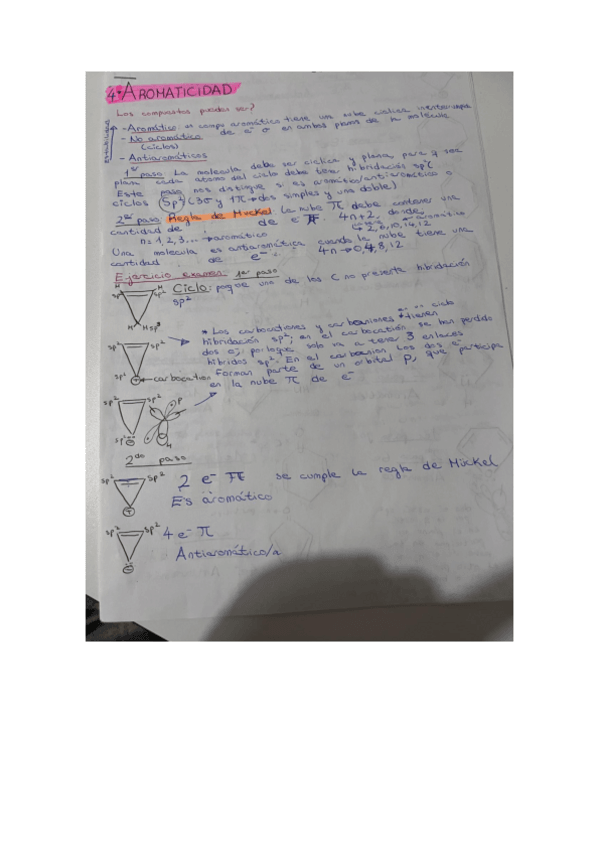 4º AROMATICIDAD
Los compuestos pueden ser?
- Aromático: es compo aromático tiene una nube cíclica ininterrumpa
de e- σ en ambos planos de la molécula
- No aromático
(ciclos)
- Antiaromáticos
estabilidad
1er paso La molecula debe ser cíclica y plana, para q sea
plana cada átomo del ciclo debe tener hibridación sp2
Este paso nos distingue si es aromático/antiaromático o
ciclos (Sp2) (3σ y 1π → dos simples y uno doble)
2do paso Regla de Huckel. La nube π debe contener una
cantidad de de e- π. 4n+2, donde
n=1,2,3... → aromático
→ 2,6,10,14,12 aromático
Una molecula es antiaromática cuando la nube tiene una
cantidad de e- 4n → 0,4,8,12
Ejercicio examen: 1er paso
Ciclo: poque uno de los C no presenta hibridación
sp2
H sp2 sp2 H
H H sp3
* Los carbocationes y carbaniones tienen
ciclo
hibridación sp2; en el carbocatión se han perdido
dos e-; por loque solo va a tener 3 enlaces
híbridos sp2. En el carbanion los dos e-
forman parte de un orbital p, que participa
en la nube π de e-
sp2 sp2
sp2 + ← carbocatión
sp2 sp2 P
sp2 ⊖ H
2do paso
sp2 sp2 2 e- π se cumple la regla de Hückel
+ Es aromático
sp2 sp2 4 e- π
⊖ Antiaromático/a